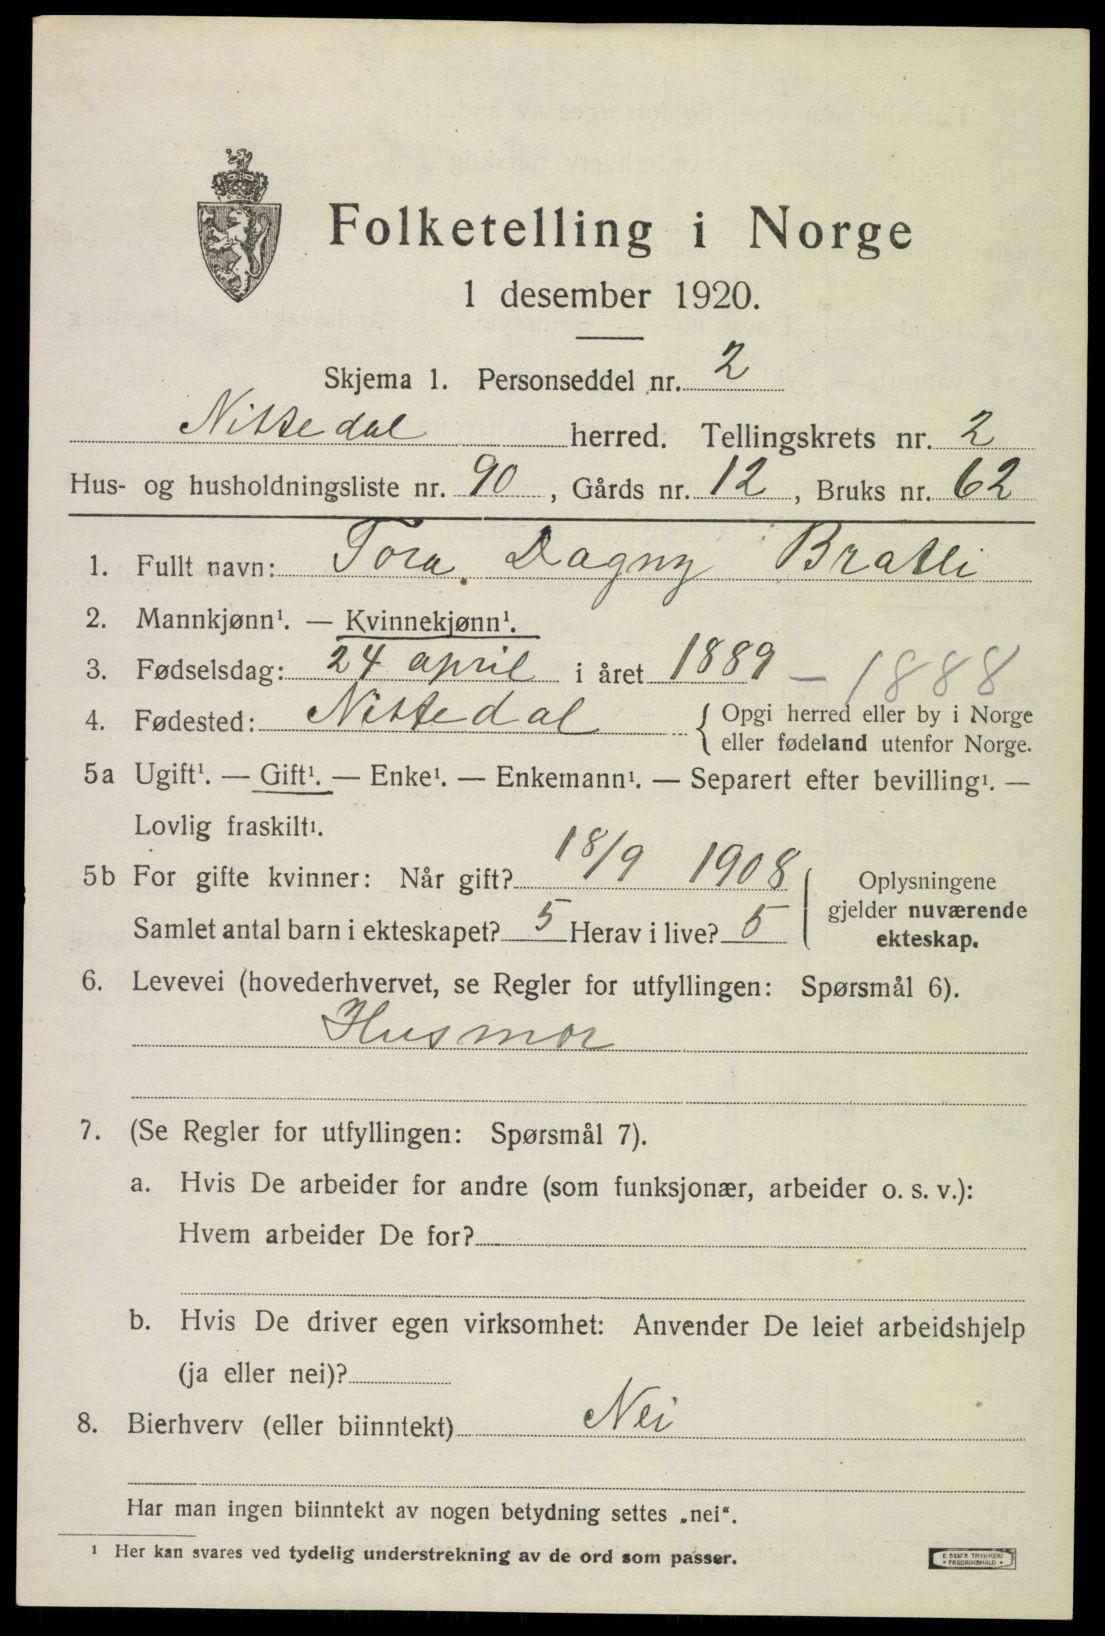 Folketelling i Norge
1 desember 1920.
Skjema 1. Personseddel nr. 2
Nittedal herred. Tellingskrets nr. 2
Hus- og husholdningsliste nr. 90, Gårds nr. 12, Bruks nr. 62
1. Fullt navn: Tora Dagny Bratli
2. Mannkjønn¹. — Kvinnekjønn¹.
3. Fødselsdag: 24 april i året 1889 – 1888
4. Fødested: Nittedal { Opgi herred eller by i Norge
eller fødeland utenfor Norge.
5a Ugift¹. — Gift¹. — Enke¹. — Enkemann¹. — Separert efter bevilling¹. —
Lovlig fraskilt¹.
5b For gifte kvinner: Når gift? 18/9 1908
Samlet antal barn i ekteskapet? 5 Herav i live? 5
Oplysningene
gjelder nuværende
ekteskap.
6. Levevei (hovederhvervet, se Regler for utfyllingen: Spørsmål 6).
Husmor
7. (Se Regler for utfyllingen: Spørsmål 7).
a. Hvis De arbeider for andre (som funksjonær, arbeider o. s. v.):
Hvem arbeider De for?
b. Hvis De driver egen virksomhet: Anvender De leiet arbeidshjelp
(ja eller nei)?
8. Bierhverv (eller biinntekt) Nei
Har man ingen biinntekt av nogen betydning settes „nei“.
¹ Her kan svares ved tydelig understrekning av de ord som passer.
E. SEM'S TRYKKERI
FREDRIKSHALD